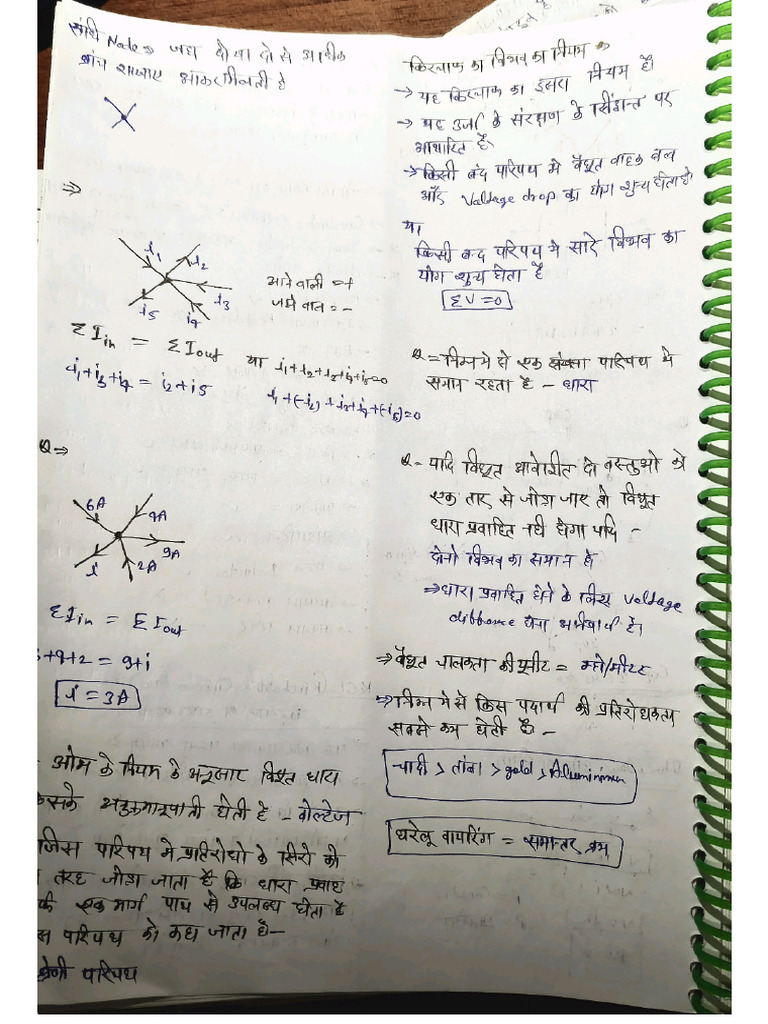 संधि Node ⇒ जहा दो या दो से अधीक
ब्रांच शाखाए आकर मिलती है
⇒
i₁
i₂
i₃
i₅
i₄
आने वाली = +
जाने वाला = -
ΣIin = ΣIout या i₁+i₂+i₃+i₄+i₅=0
i₁+i₃+i₄ = i₂+i5
i₁+(-i₂)+i₃+i₄+(-i₅)=0
Q⇒
6A
4A
9A
i
2A
ΣIin = ΣIout
+4+2 = 9+i
i = 3A
- ओम के नियम के अनुसार विधुत धारा
किसके अनुक्रमानुपाती होती है - वोल्टेज
जिस परिपथ मे प्रतिरोधो के सिरो को
तरह जोडा जाता है कि धारा प्रवाह
एक मार्ग पाथ से उपलब्ध होता है
परिपथ को कहा जाता है-
श्रेणी परिपथ
किरचाफ का विभव का नियम ⇒
→ यह किरचाफ का दुसरा नियम है।
→ यह उर्जा के संरक्षण के सिद्दान्त पर
आधारित है
→ किसी बंद परिपथ मे वैधुत वाहक बल
और Valdage drop का योग शुन्य होता है,
या
किसी बन्द परिपथ मे सारे विभव का
योग शुन्य होता है
ΣV=0
Q = निम्न मे से एक परिपथ मे
समान रहता है - धारा
Q- यदि विधुत आवेशीत दो वस्तुओ को
एक तार से जोडा जाए तो विधुत
धारा प्रवाहित नही होगा यदि -
दोनो विभव का समान हो
⇒ धारा प्रवाहित होने के लिए Voldage
diffrance होना अनिवार्य है।
⇒ वैधुत चालकता की युनीट = म्हो/मीटर
⇒ निम्न मे से किस पदार्थ की प्रतिरोधकता
सबसे कम होती है -
चादी > तांबा > gold > Alluminimun
घरेलू वायरिंग = समान्तर क्रम